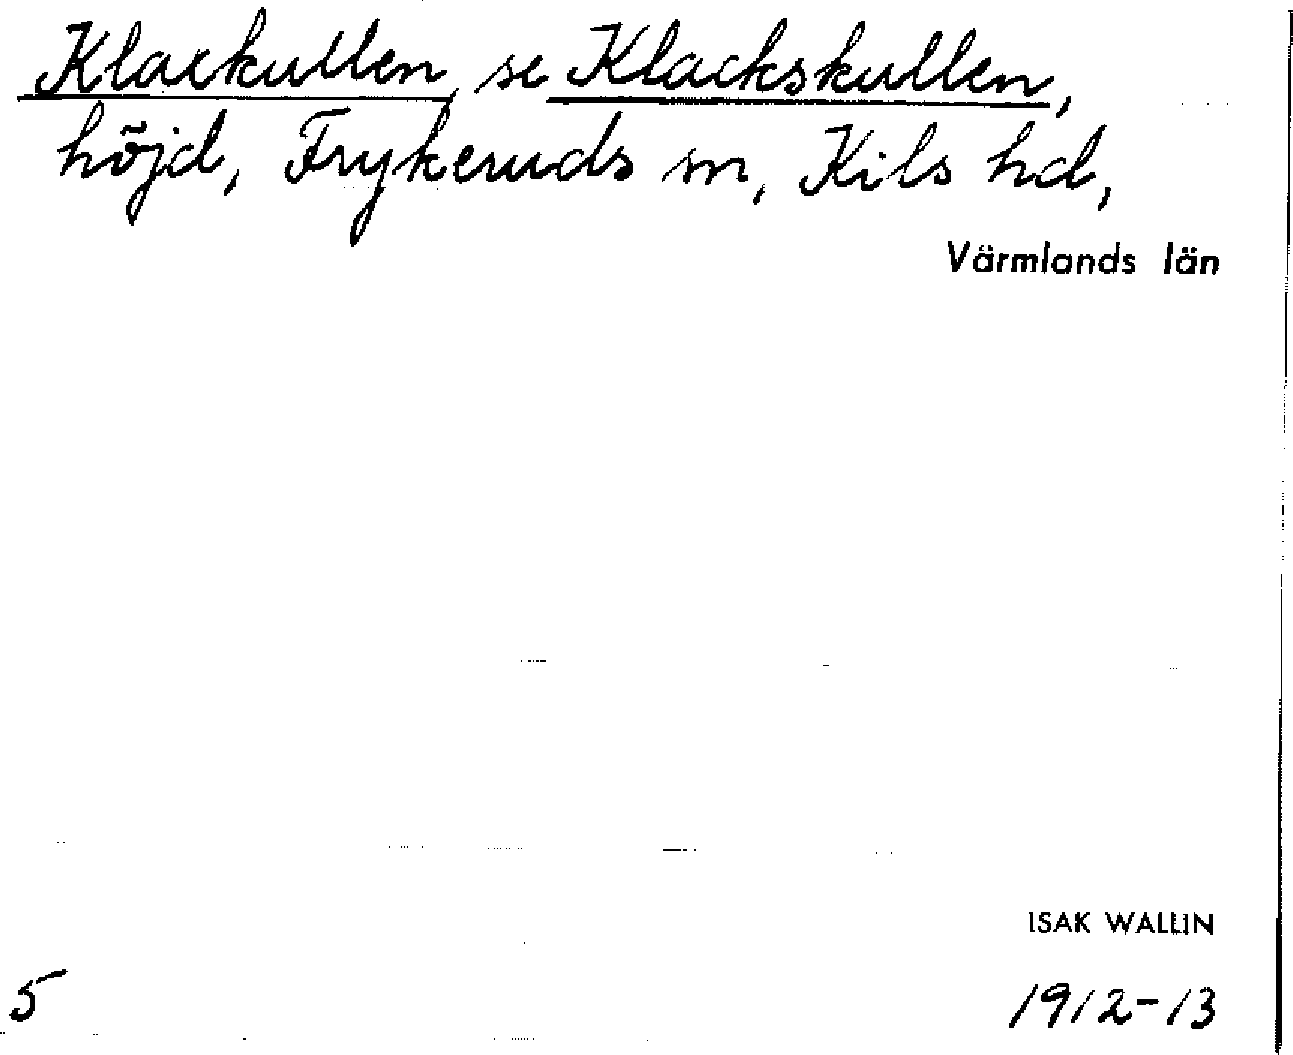 Klackullen, se Klackskullen,
höjd, Frykeruds sn, Kils hd,
Värmlands län
ISAK WALLIN
5
1912-13